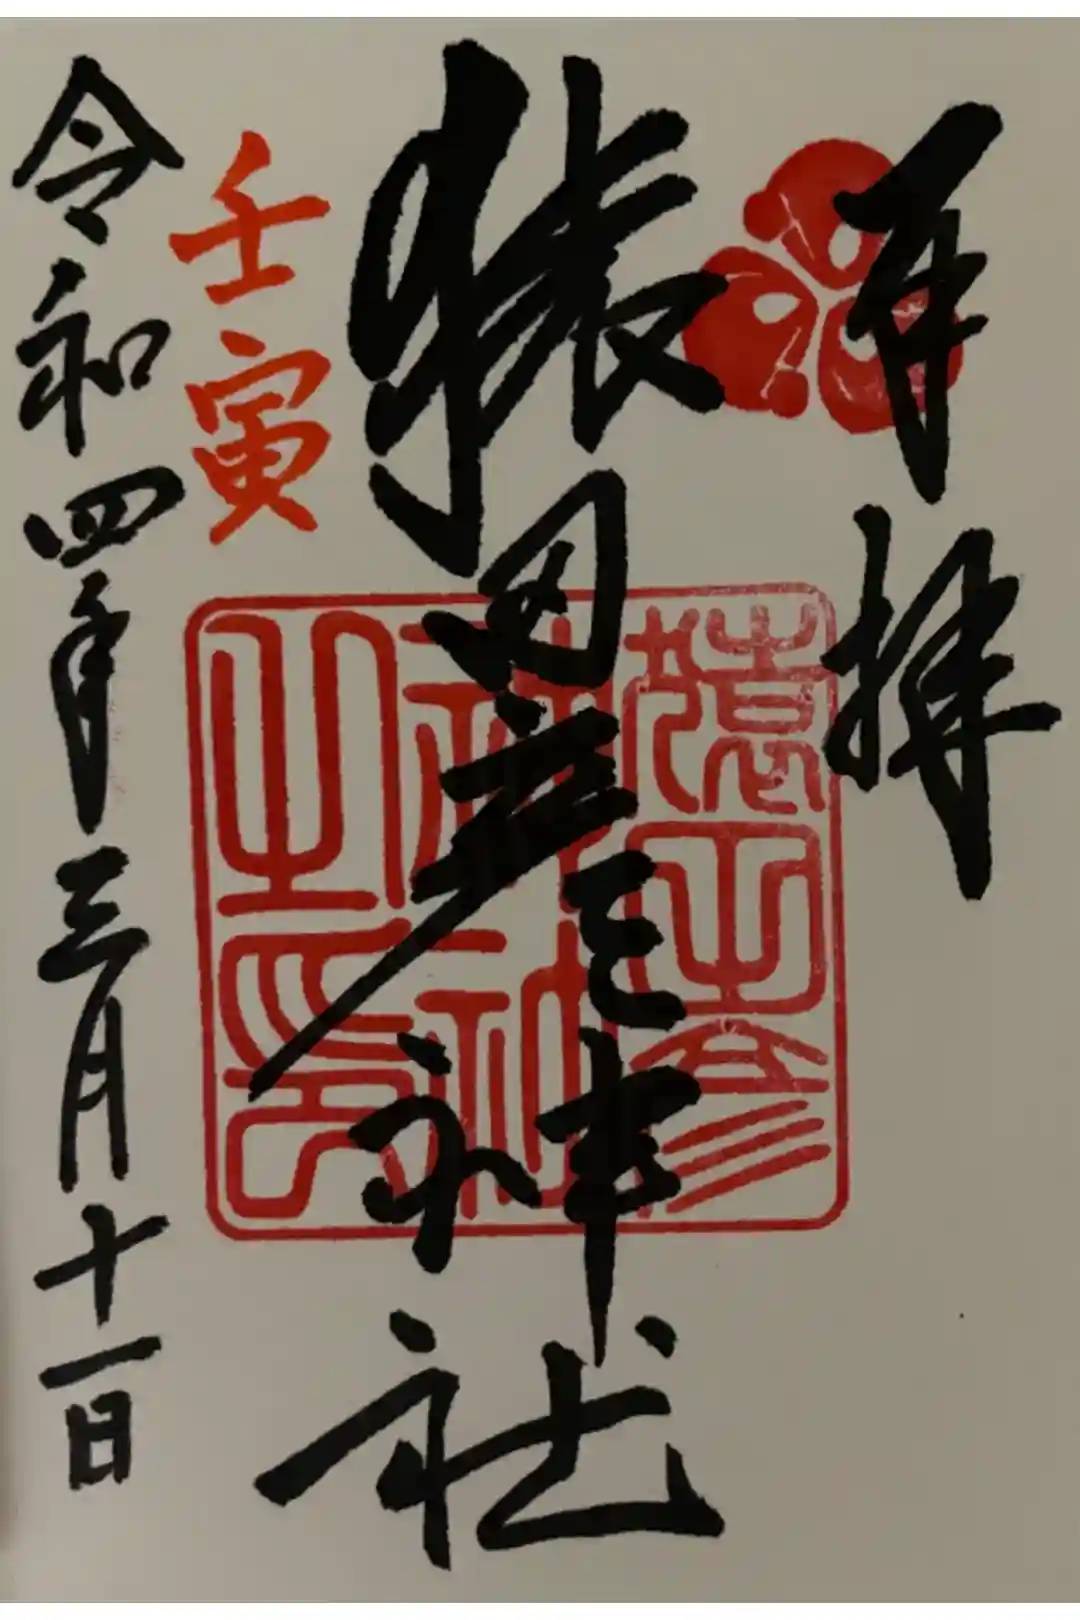 再拝
猿田彦神社
猿田彦
神社
之印
壬寅
令和四年三月十一日